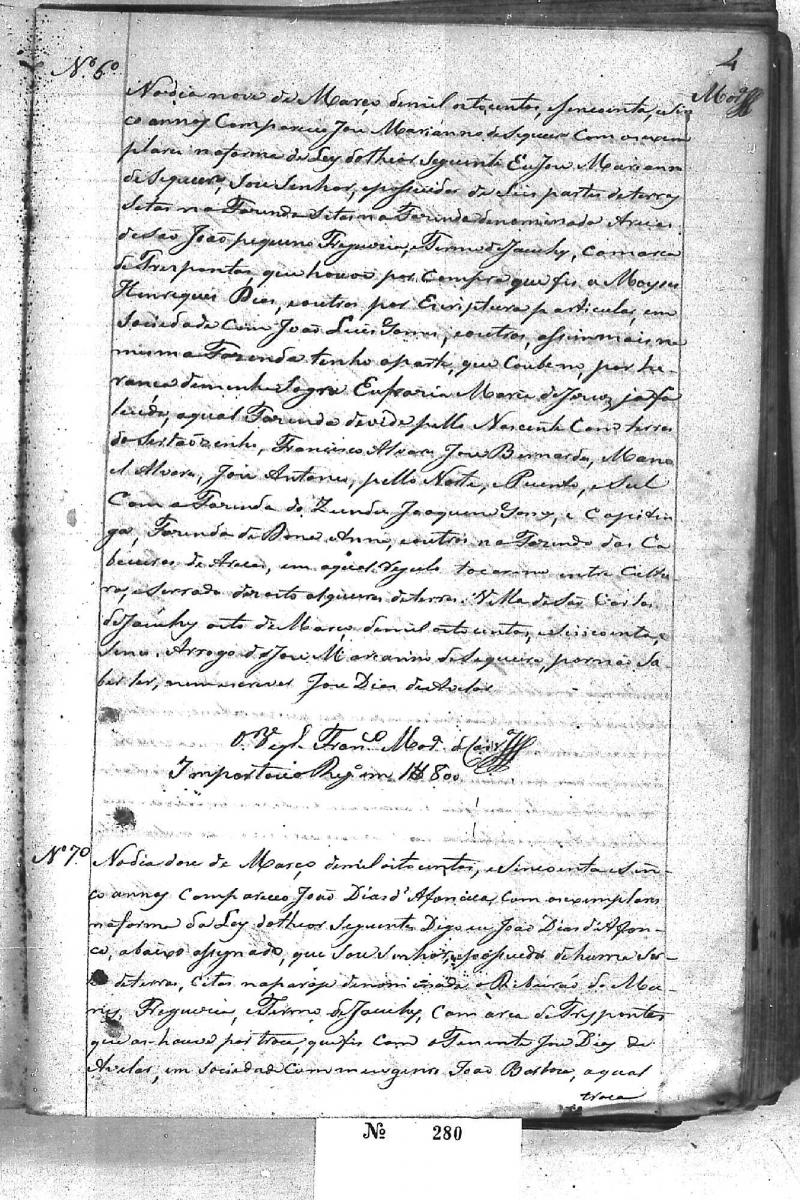 4
Mod.
Nº 6º
No dia nove de Março de mil oitocentos, e sincoenta, e sin
co annos Compareceo Joze Marianno de Siqueira Com os exem
plares na forma da Ley do theor Seguinte Eu Joze Mariann
de Siqueira, Sou Senhor, e possuidor de Seis partes de terras
Setas na Fazenda Setas na Fazenda denominada Areas
de São João pequeno Freguezia, e Termo de Jacuhy, Comarca
de Trespontas que houve por Compra que fis a Moyses
Henriques Dias, e outros por Escriptura particular, em
Sociedade Com João Luis Gomes, e outros, assim mais na
mesma Fazenda tenho a parte, que Coube me, por he-
rança de minha Sogra Eufrazia Maria de Jesus, ja fa
lecida, a qual Fazenda devide pello Nascente Com terras
do Sertãozinho, Francisco Alvares Joze Bernardes, Mano
el Alvares, Joze Antonio, pello Norte, e Puente, e Sul
Com a Fazenda do Joaquim Gomes, e Capitin
ga, Fazenda de Dona Anna, e outros na Fazenda das Ca
beceiras de Areas, em aqual tocarme entre Cultu
ras, e Serrado dezoito alqueires de terras. Villa de São Carlos
de Jacuhy oito de Março de mil oitocentos, e Sincoenta, e
Sinco. Arrogo de Joze Marianno de Siqueira, por não Sa
ber ler, nem escrever Joze Dias de Avelar
O Vigº. Franº. Mod.
Importa o Regº em 1$800
Nº 7º
No dia doze de Março de mil oitocentos, e Sincoenta e Sin-
co annos Compareceo João Dias d'Afonceca, Com os exemplares
na forma da Ley do theor Seguinte Digo eu João Dias d'Afon-
ca, abaixo assignado, que Sou Senhor, e possuidor de huma Sor-
de terras, Citas na parage denominada o Ribeirão de Ma-
Freguezia, e Termo de Jacuhy, Comarca de Trespontas
que as houve por troca, que fis Com o Tenente Joze Dias de
Avelar, em Sociedade Com meu genro João Barboza, a qual
troca
Nº 280